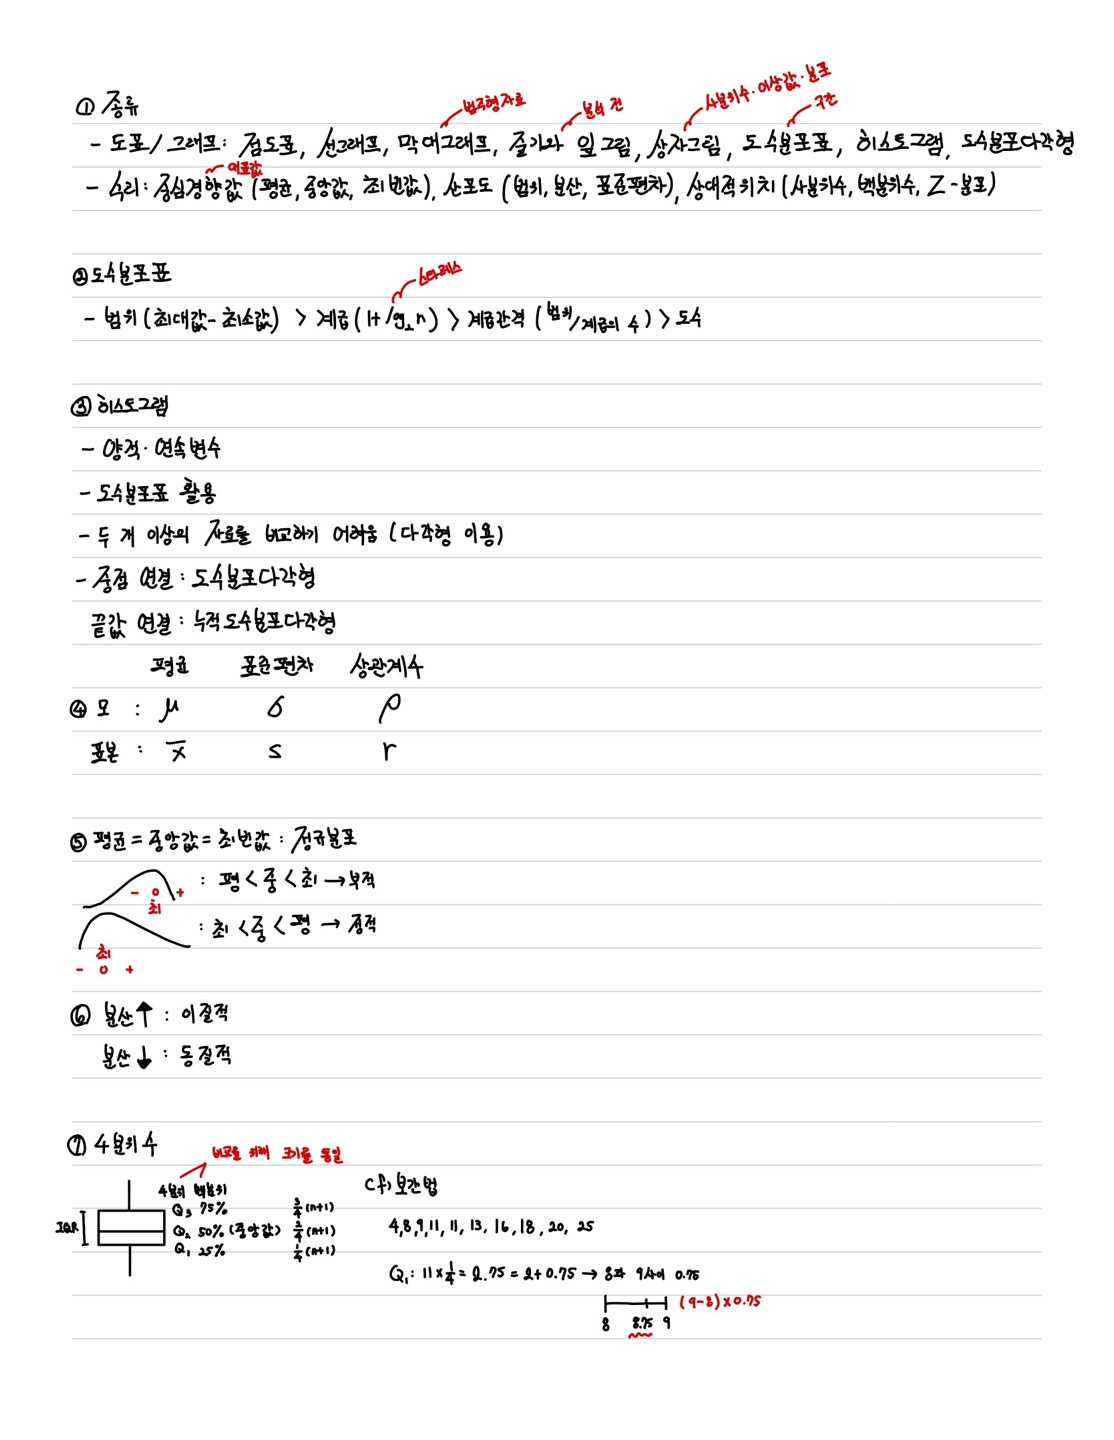 ① 종류
범주형자료
분석 전
사분위수·이상값·분포
구간
- 도표/그래프: 점도표, 선그래프, 막대그래프, 줄기와 잎그림, 상자그림, 도수분포표, 히스토그램, 도수분포다각형
대푯값
- 수리: 중심경향값 (평균, 중앙값, 최빈값), 산포도 (범위, 분산, 표준편차), 상대적위치 (사분위수, 백분위수, Z-분포)
② 도수분포표
- 범위 (최대값-최소값) > 계급 (1+log₂n) > 계급간격 (범위/계급의 수) > 도수
③ 히스토그램
- 양적·연속변수
- 도수분포표 활용
- 두 개 이상의 자료를 비교하기 어려움 (다각형 이용)
- 중점 연결: 도수분포다각형
끝값 연결: 누적도수분포다각형
평균 표준편차 상관계수
④ 모 : μ σ ρ
표본 : x̄ s r
⑤ 평균=중앙값=최빈값: 정규분포
: 평<중<최 → 부적
- 0 +
최
: 최<중<평 → 정적
최
- 0 +
⑥ 분산↑ : 이질적
분산↓ : 동질적
⑦ 4분위수
비교를 위해 크기를 통일
4분위 백분위
Q₃ 75% 3/4(n+1)
IQR Q₂ 50% (중앙값) 2/4(n+1)
Q₁ 25% 1/4(n+1)
cf) 보간법
4,8,9,11,11,13,16,18,20,25
Q₁: 11×1/4=2.75=2+0.75 → 8과 9사이 0.75
(9-8)×0.75
8 8.75 9